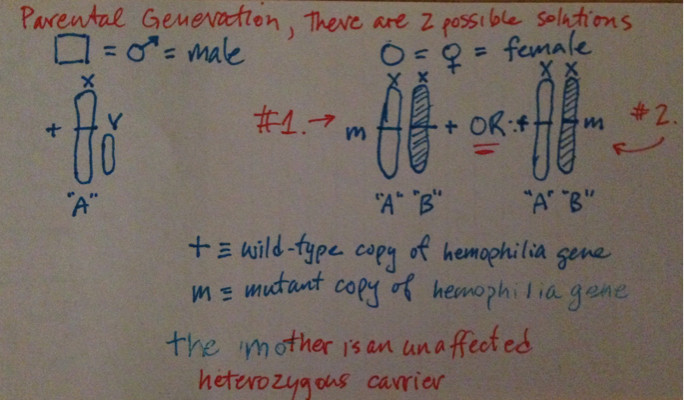 Parental Generation, There are 2 possible solutions
□ = ♂ = male
○ = ♀ = female
X
+ Y
"A"
#1. →
X X
m +
"A" "B"
OR:
X X
+ m
"A" "B"
#2.
+ ≡ wild-type copy of hemophilia gene
m ≡ mutant copy of hemophilia gene
the mother is an unaffected
heterozygous carrier